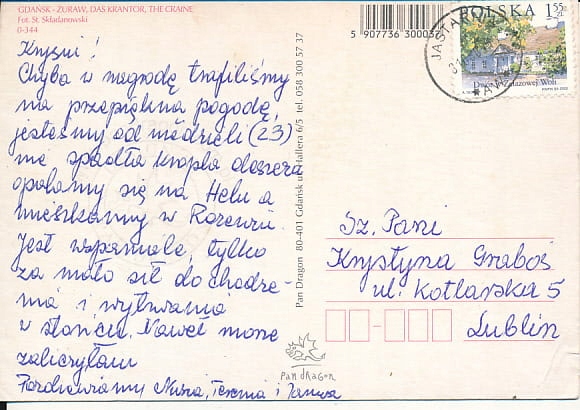 GDAŃSK - ŻURAW, DAS KRANTOR, THE CRAINE
Fot. St. Składanowski
0-344
Krysiu!
Chyba w nagrodę trafiliśmy
na przepiękną pogodę,
jesteśmy od niedzieli (23)
nie spadła kropla deszczu
opalamy się na Helu a
mieszkamy w
Jest wspaniale, tylko
za mało sił do chodze-
nia i wytrwania
w słońcu. Nawet morze
zaliczyłam
Pozdrawiamy Teresa i Janusz
5 907736 30003
Pan Dragon 80-401 Gdańsk ul. Hallera 6/5 tel. 058 300 57 37
pan dragon
JASTAR
POLSKA 1,55 zł
Dwór w Żelazowej Woli
Sz. Pani
Krystyna Graboś
ul. Kotlarska 5
Lublin